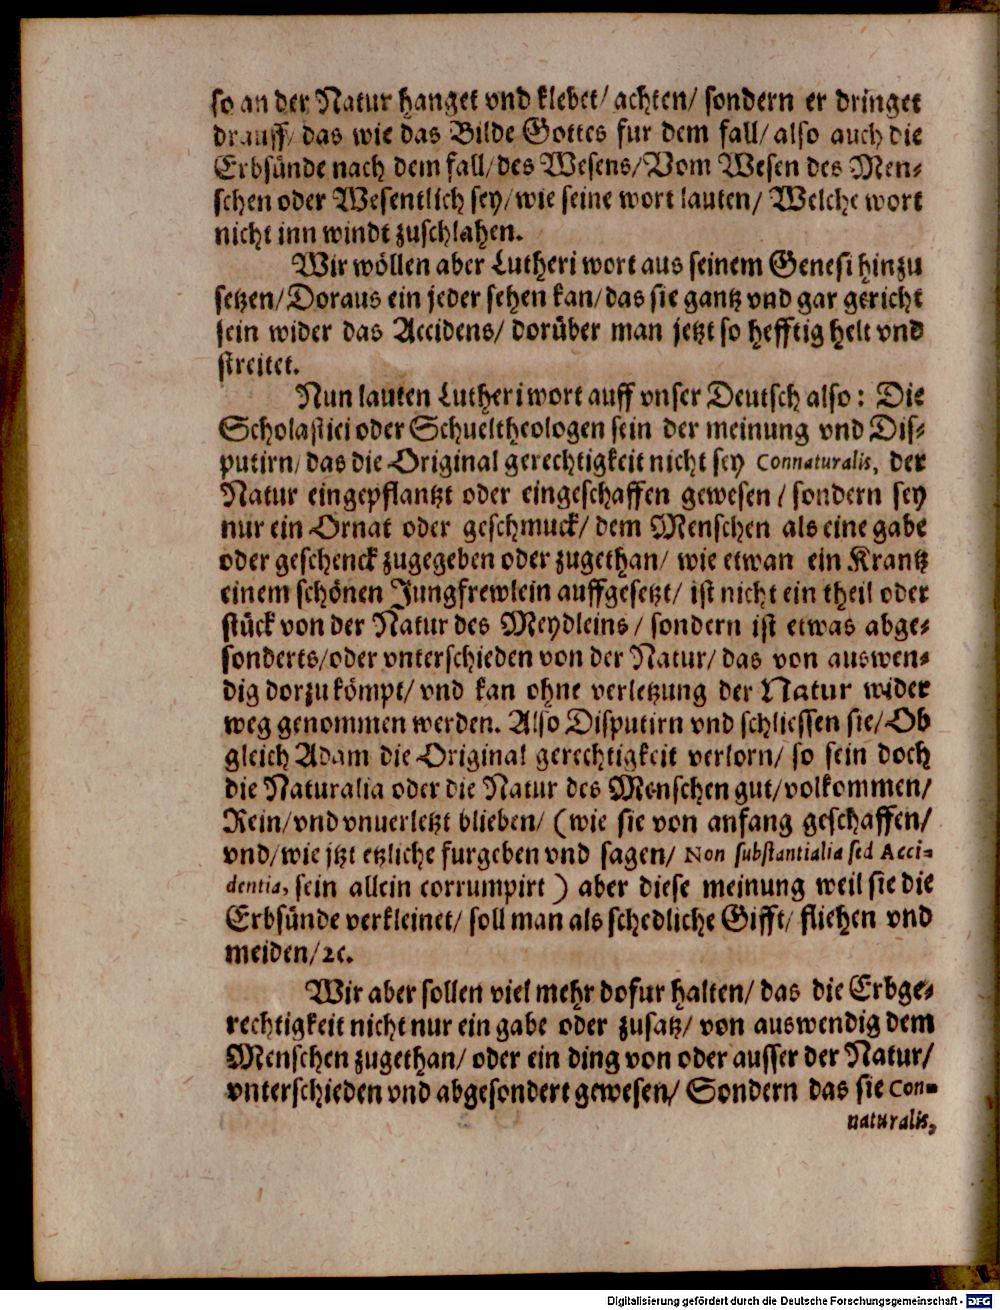 so an der Natur hanget vnd klebet/ achten/ sondern er dringet
drauff/ das wie das Bilde Gottes fur dem fall/ also auch die
Erbsünde nach dem fall/ des Wesens/ Vom Wesen des Men-
schen oder Wesentlich sey/ wie seine wort lauten/ Welche wort
nicht inn windt zuschlahen.
Wir wöllen aber Lutheri wort aus seinem Genesi hinzu
setzen/ Doraus ein jeder sehen kan/ das sie gantz vnd gar gericht
sein wider das Accidens/ dorüber man jetzt so hefftig helt vnd
streitet.
Nun lauten Lutheri wort auff vnser Deutsch also: Die
Scholastici oder Schueltheologen sein der meinung vnd Dis-
putirn/ das die Original gerechtigkeit nicht sey Connaturalis, der
Natur eingepflantzt oder eingeschaffen gewesen/ sondern sey
nur ein Ornat oder geschmuck/ dem Menschen als eine gabe
oder geschenck zugegeben oder zugethan/ wie etwan ein Krantz
einem schönen Jungfrewlein auffgesetzt/ ist nicht ein theil oder
stück von der Natur des Meydleins/ sondern ist etwas abge-
sonderts/ oder vnterschieden von der Natur/ das von auswen-
dig dorzu kömpt/ vnd kan ohne verletzung der Natur wider
weg genommen werden. Also Disputirn vnd schliessen sie/ Ob
gleich Adam die Original gerechtigkeit verlorn/ so sein doch
die Naturalia oder die Natur des Menschen gut/ volkommen/
Rein/ vnd vnuerletzt blieben/ (wie sie von anfang geschaffen/
vnd/ wie jtzt etzliche furgeben vnd sagen/ Non substantialia sed Acci-
dentia, sein allein corrumpirt) aber diese meinung weil sie die
Erbsünde verkleinet/ soll man als schedliche Gifft/ fliehen vnd
meiden/ ꝛc.
Wir aber sollen viel mehr dofur halten/ das die Erbge-
rechtigkeit nicht nur ein gabe oder zusatz/ von auswendig dem
Menschen zugethan/ oder ein ding von oder ausser der Natur/
vnterschieden vnd abgesondert gewesen/ Sondern das sie Con-
naturalis,
Digitalisierung gefördert durch die Deutsche Forschungsgemeinschaft - DFG